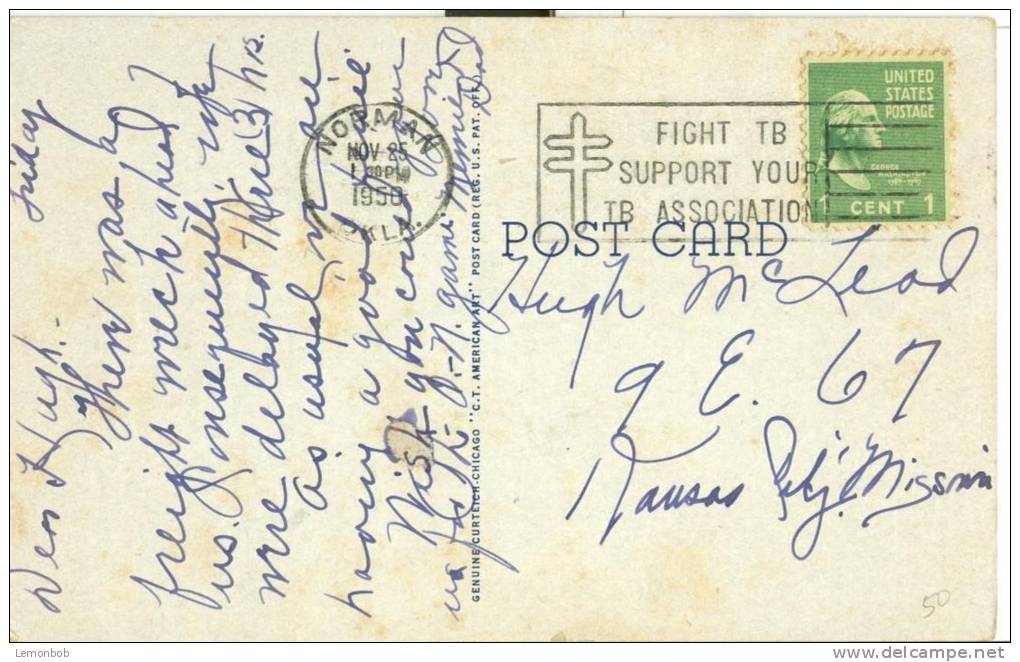 Friday
Dear Hugh:-
There was a
freight wreck ahead of
us. Consequently we
were delayed three (3) hrs.
as usual we are
having a good time
Wish you could
see the O.-N. game
Jimmie
NORMAN
NOV 25
1 30 PM
1950
OKLA.
FIGHT TB
SUPPORT YOUR
TB ASSOCIATION
UNITED
STATES
POSTAGE
GEORGE
WASHINGTON
1789-1797
1 CENT 1
POST CARD
Hugh McLead
9 E. 67
Kansas City, Missouri
GENUINE CURTEICH-CHICAGO "C.T. AMERICAN ART" POST CARD (REG. U.S. PAT. OFF.)
50
Lemonbob
www.delcampe.net